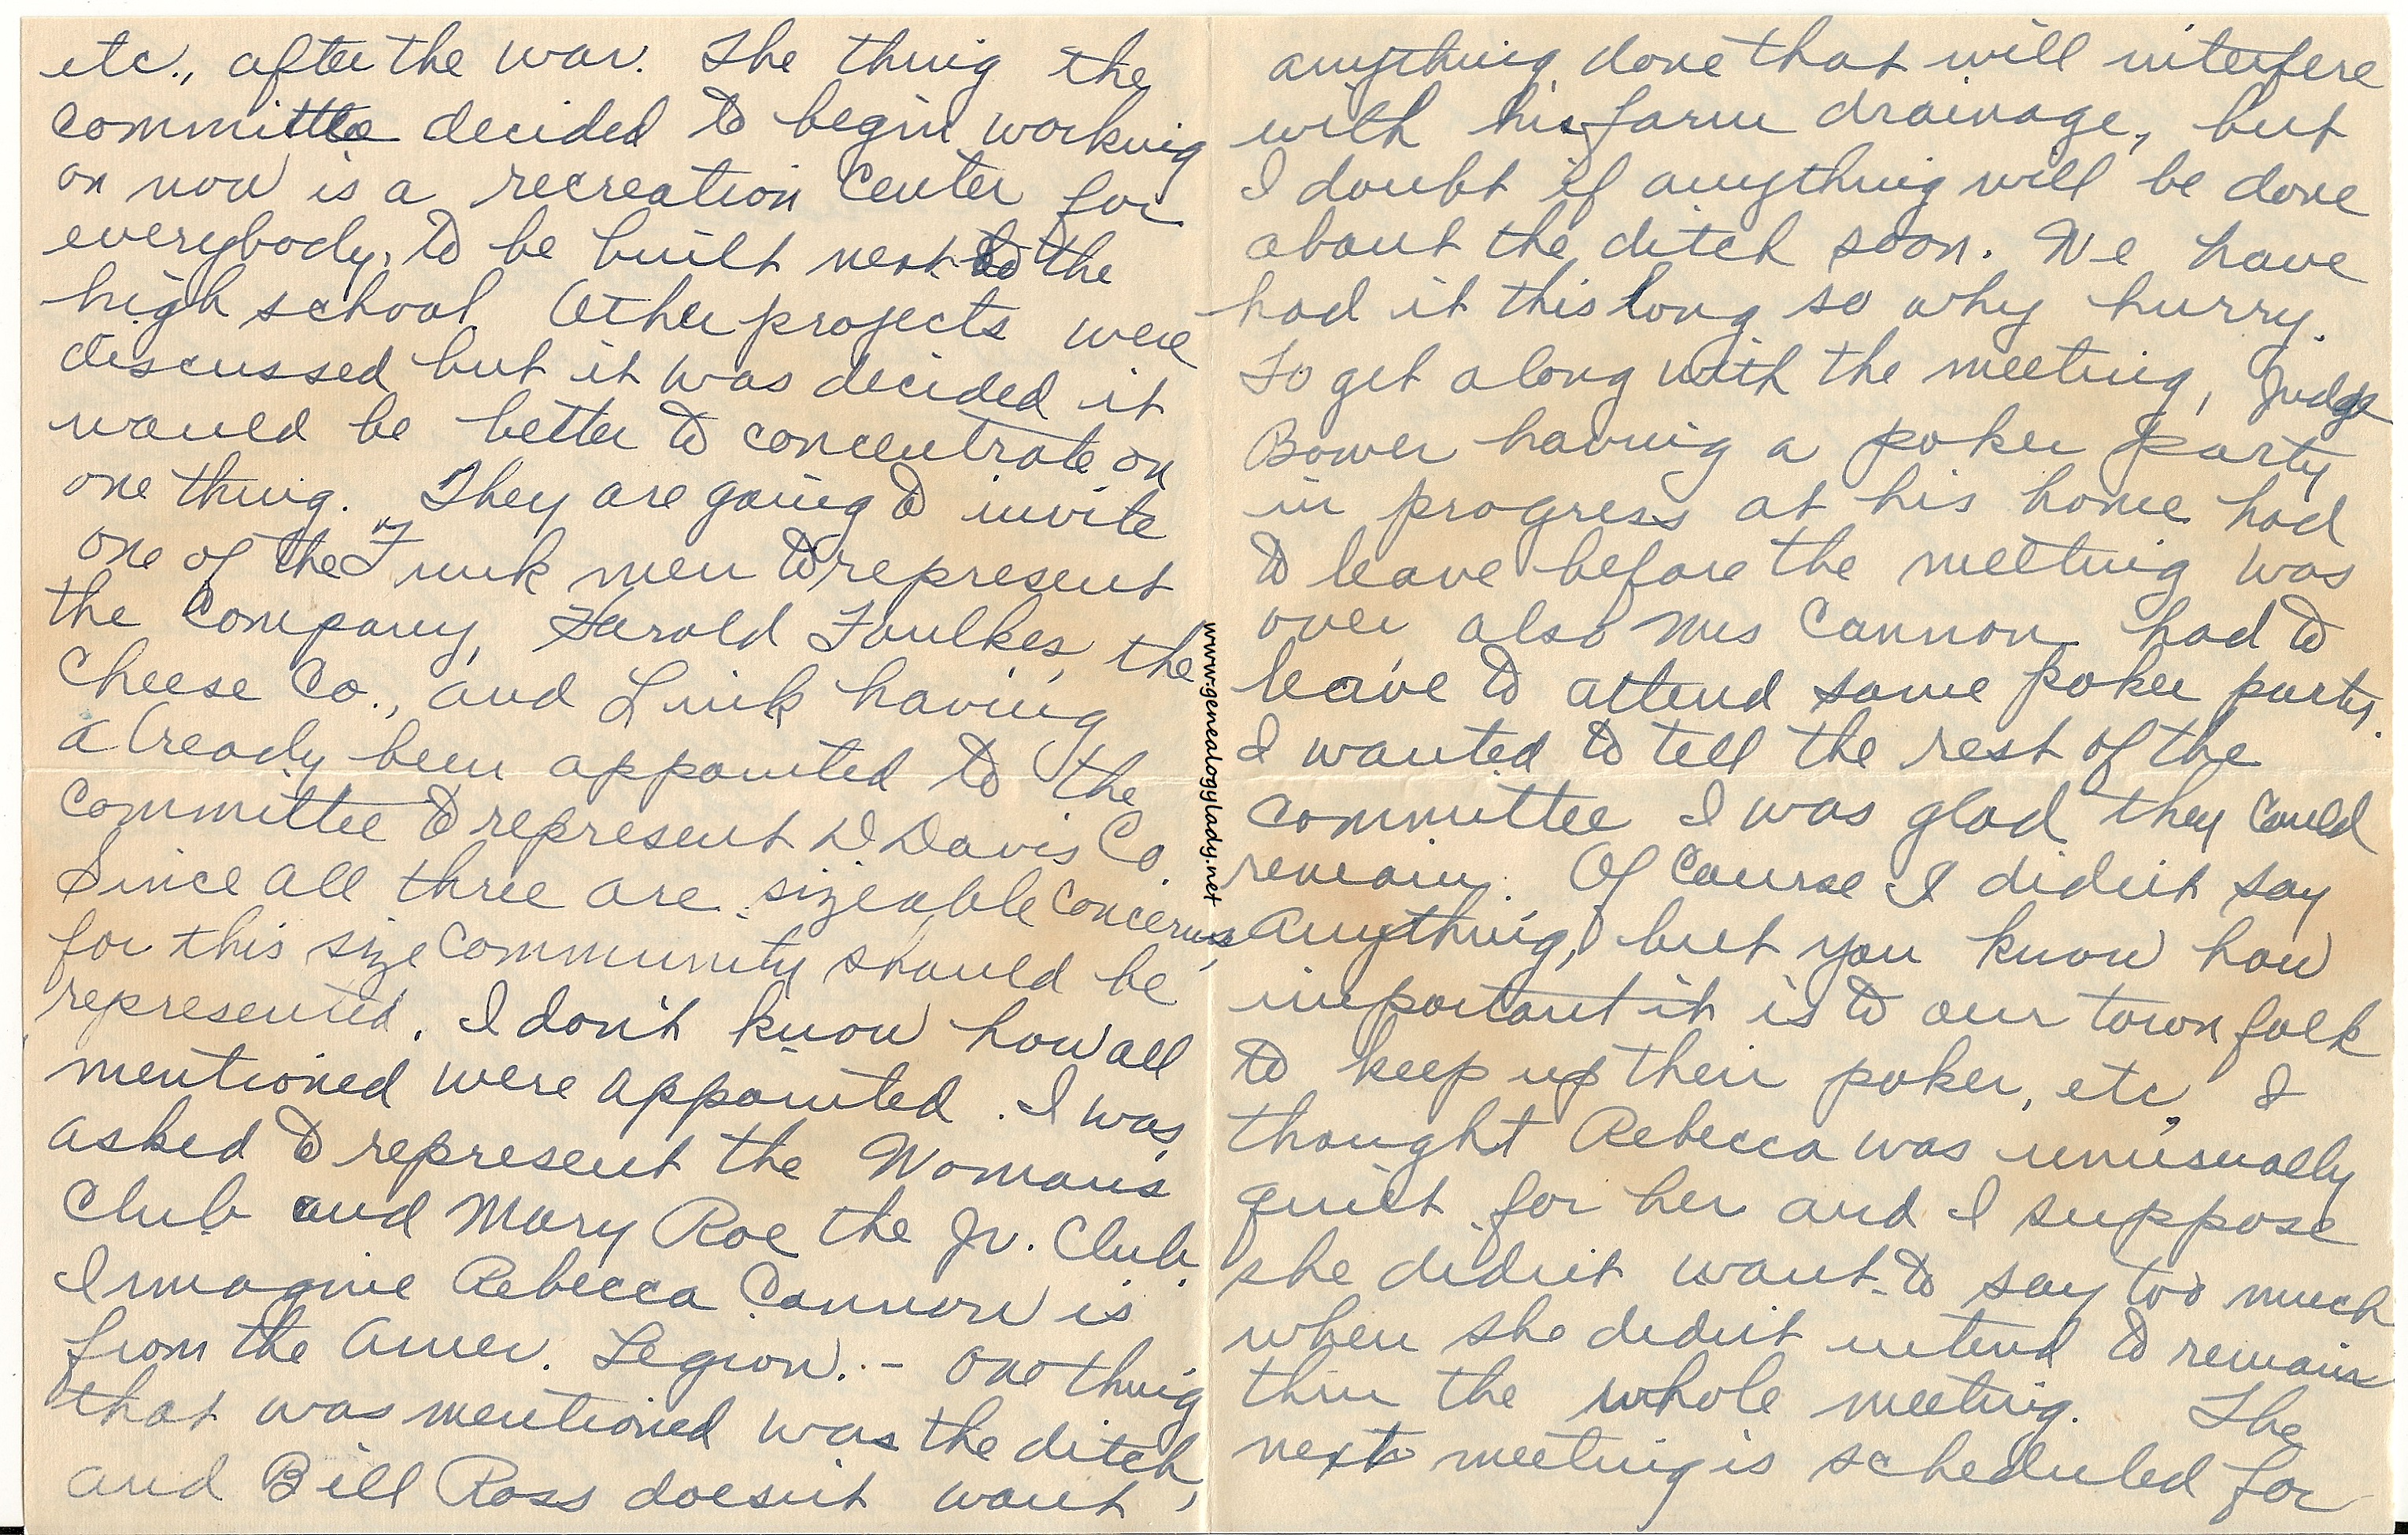 etc., after the war. The thing the
committee decided to begin working
on now is a recreation center for
everybody, to be built next to the
high school. Other projects were
discussed but it was decided it
would be better to concentrate on
one thing. They are going to invite
one of the Funk men to represent
the Company, Harold Foulkes, the
Cheese Co., and Link having
already been appointed to the
committee to represent D Davis Co.
Since all three are sizeable concerns,
for this size community should be
represented. I don't know how all
mentioned were appointed. I was
asked to represent the Woman's
Club and Mary Roe the Jr. Club.
I imagine Rebecca Cannon is
from the Amer. Legion. - One thing
that was mentioned was the ditch,
and Bill Ross doesn't want
anything done that will interfere
with his farm drainage, but
I doubt if anything will be done
about the ditch soon. We have
had it this long so why hurry.
To get along with the meeting, Judge
Bower having a poker party
in progress at his home had
to leave before the meeting was
over also Mrs Cannon had to
leave to attend some poker party.
I wanted to tell the rest of the
committee I was glad they could
remain. Of course I didn't say
anything, but you know how
important it is to our town folk
to keep up their poker, etc. I
thought Rebecca was unusually
quiet for her and I suppose
she didn't want to say too much
when she didn't intend to remain
thru the whole meeting. The
next meeting is scheduled for
www.genealogylady.net